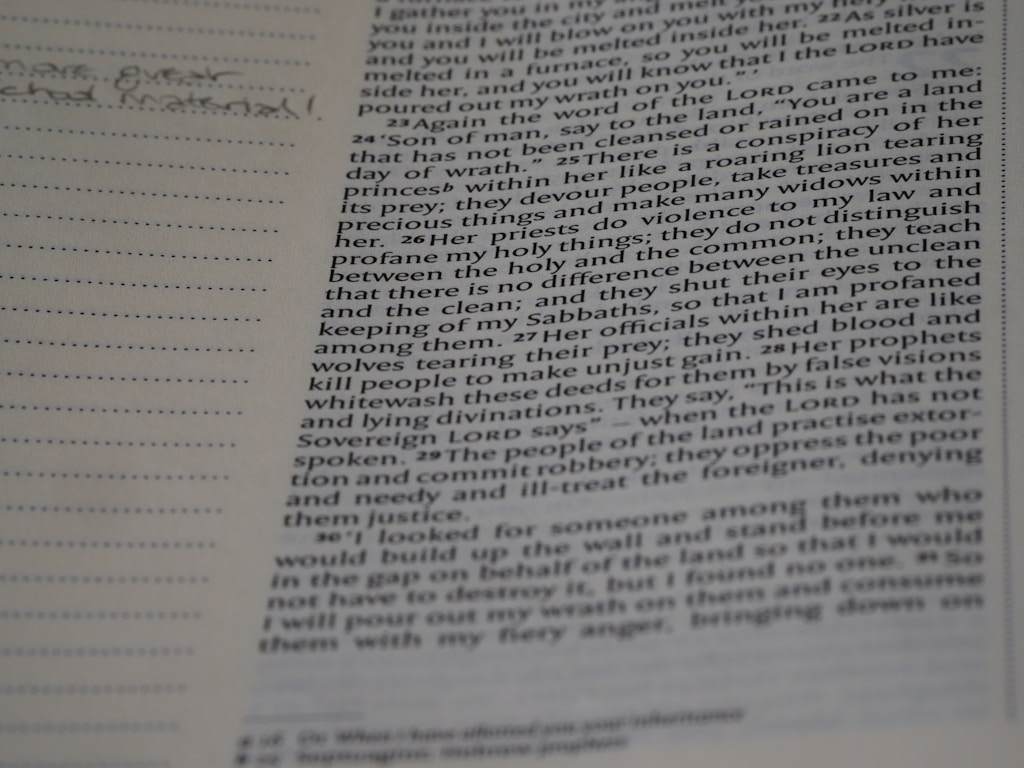 I gather you in my
you inside the city and melt
you and I will blow on you with my fiery
and you will be melted inside her. 22 As silver is
melted in a furnace, so you will be melted in-
side her, and you will know that I the LORD have
poured out my wrath on you.” ’
23 Again the word of the LORD came to me:
24 ‘Son of man, say to the land, “You are a land
that has not been cleansed or rained on in the
day of wrath.” 25 There is a conspiracy of her
princesb within her like a roaring lion tearing
its prey; they devour people, take treasures and
precious things and make many widows within
her. 26 Her priests do violence to my law and
profane my holy things; they do not distinguish
between the holy and the common; they teach
that there is no difference between the unclean
and the clean; and they shut their eyes to the
keeping of my Sabbaths, so that I am profaned
among them. 27 Her officials within her are like
wolves tearing their prey; they shed blood and
kill people to make unjust gain. 28 Her prophets
whitewash these deeds for them by false visions
and lying divinations. They say, “This is what the
Sovereign LORD says” – when the LORD has not
spoken. 29 The people of the land practise extor-
tion and commit robbery; they oppress the poor
and needy and ill-treat the foreigner, denying
them justice.
30 ‘I looked for someone among them who
would build up the wall and stand before me
in the gap on behalf of the land so that I would
not have to destroy it, but I found no one. 31 So
I will pour out my wrath on them and consume
them with my fiery anger, bringing down on
material!